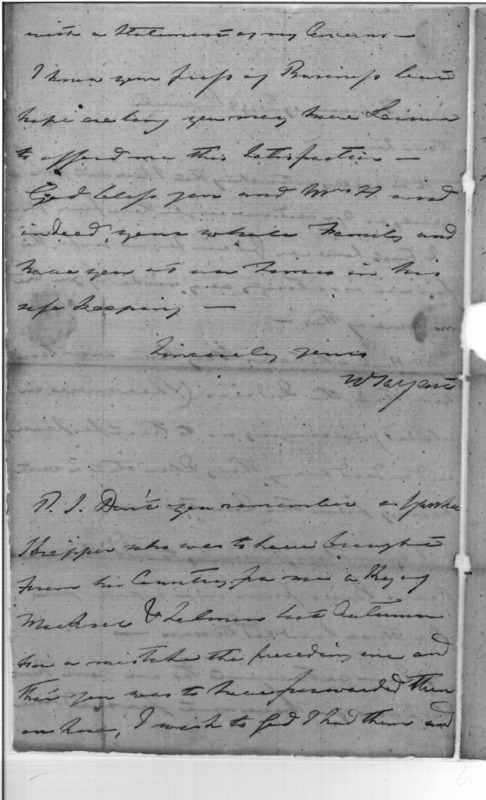 with a Statement of my Concerns —
I know your press of Business but
hope ere long you may have Leisure
to afford me this Satisfaction —
God bless you and Mrs H and
indeed your whole Family and
have you at all times in his
safe keeping —
Sincerely yours
W Sargent
P. S. Don't you remember a Yankee
Skipper who was to have brought
from his Country for me a Keg of
Mackrel & Salmon last Autumn
tis a mistake the preceding one and
that you was to have forwarded them
on here, I wish to God I had them and